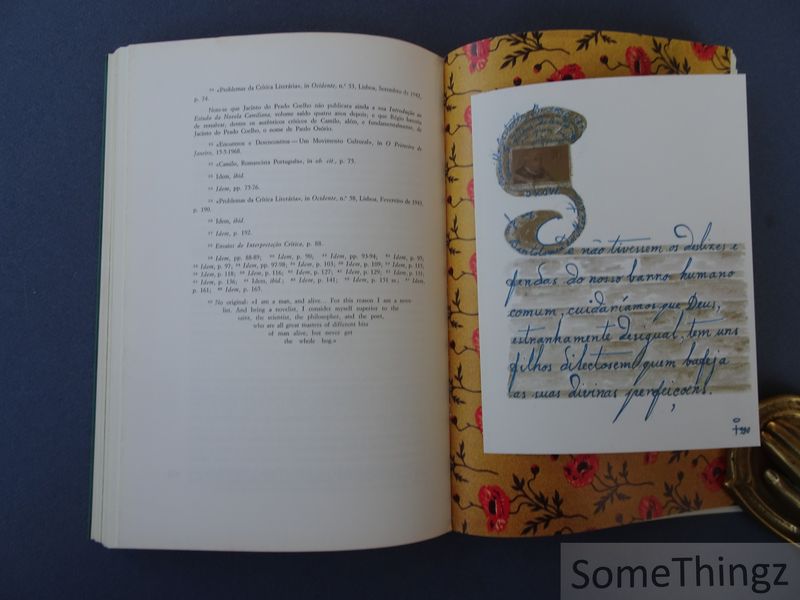 «Problemas da Crítica Literária», in Ocidente, n.º 53, Lisboa, Setembro de 1942,
p. 74.
Note-se que Jacinto do Prado Coelho não publicara ainda a sua Introdução ao
Estudo da Novela Camiliana, volume saído quatro anos depois; e que Régio haveria
de ressalvar, dentre os autênticos críticos de Camilo, além, e fundamentalmente, de
Jacinto do Prado Coelho, o nome de Paulo Osório.
«Encontros e Desencontros — Um Movimento Cultural», in O Primeiro de
Janeiro, 15-5-1968.
«Camilo, Romancista Português», in ob. cit., p. 75.
Idem, ibid.
Idem, pp. 75-76.
«Problemas da Crítica Literária», in Ocidente, n.º 58, Lisboa, Fevereiro de 1943,
p. 190.
Idem, ibid.
Idem, p. 192.
Ensaios de Interpretação Crítica, p. 88.
Idem, pp. 88-89; Idem, p. 90; Idem, pp. 93-94; Idem, p. 95;
Idem, p. 97; Idem, pp. 97-98; Idem, p. 103; Idem, p. 109; Idem, p. 115;
Idem, p. 118; Idem, p. 116; Idem, p. 127; Idem, p. 129; Idem, p. 131;
Idem, p. 136; Idem, ibid.; Idem, p. 141; Idem, p. 151 Idem,
p. 161; Idem, p. 165.
No original: «I am a man, and alive... For this reason I am a nove-
list. And being a novelist, I consider myself superior to the
saint, the scientist, the philosopher, and the poet,
who are all great masters of different bits
of man alive, but never get
the whole hog.»
e não tivessem os deslizes e
fendas do nosso barro humano
comum, cuidaríamos que Deus,
estranhamente desigual, tem uns
filhos dilectos em quem bafeja
as suas divinas perfeiçoens.
SomeThingz